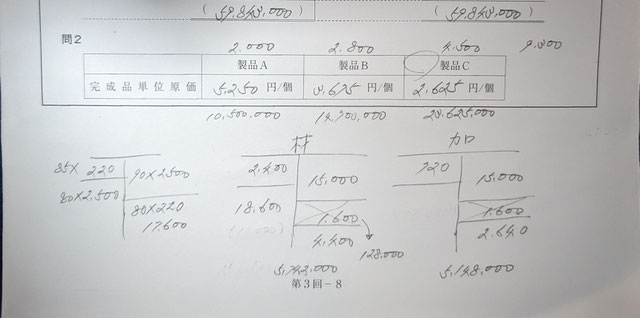 (59,843,000) (59,843,000)
問2
2.000 2.800 4.500 9.300
製品A 製品B 製品C
完成品単位原価 5,250 円/個 3,675 円/個 2,625 円/個
10,500,000 14,700,000 23,625,000
材 加
85× 220 90×2500 2,400 15,000 720 15,000
80×2,500 80×220 18,600 1.600 1.600
17,600 4,400 2.640
128,000
5,742,000 5,148,000
第3回-8